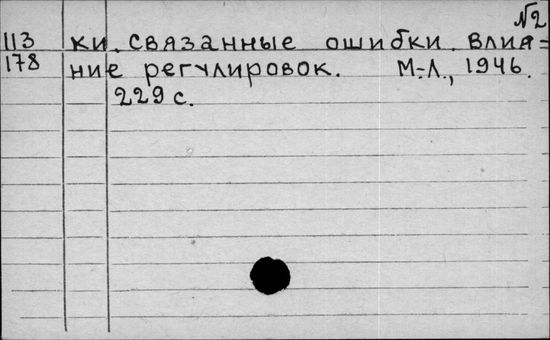 №2
113 ки. связанные ошибки. Влия=
178 ние регулировок. М-Л., 1946.
229 с.